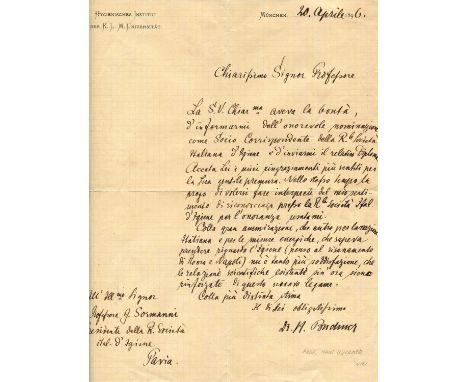 HYGIENISCHES INSTITUT
DER K. L. M. UNIVERSITÄT
MÜNCHEN, 20. Aprile
Chiarissimo Signor Professore
La S. V. Chiar.ma aveva la bontà,
d'informarmi dell'onorevole nominazione
come Socio Corrispondente della R.le Società
Italiana d'Igiene e d'inviarmi il relativo Diploma
Accetta Lei i miei ringraziamenti più sentiti per
la Sua gentile premura. Nello stesso tempo La
prego di volersi fare interprete del mio senti-
mento di riconoscenza presso la R.le Società Ital.
d'Igiene per l'onoranza usatami.
Colla gran ammirazione, che nutro per la nazione
Italiana e per le misure energiche, che sapeva
prendere riguardo l'Igiene (penso al risanamento
di Roma e Napoli) mi è tanto più soddisfazione, che
le relazioni scientifiche esistenti sin ora siano
rinforzate di questo nuovo legame.
Colla più distinta stima
Il di Lei obligatissimo
Dr. H. Buchner
All' Ill.mo Signor
Professore G. Sormanni
Presidente della R. Società
ital. d'Igiene
Pavia.
PROF. HANS BUCHNER